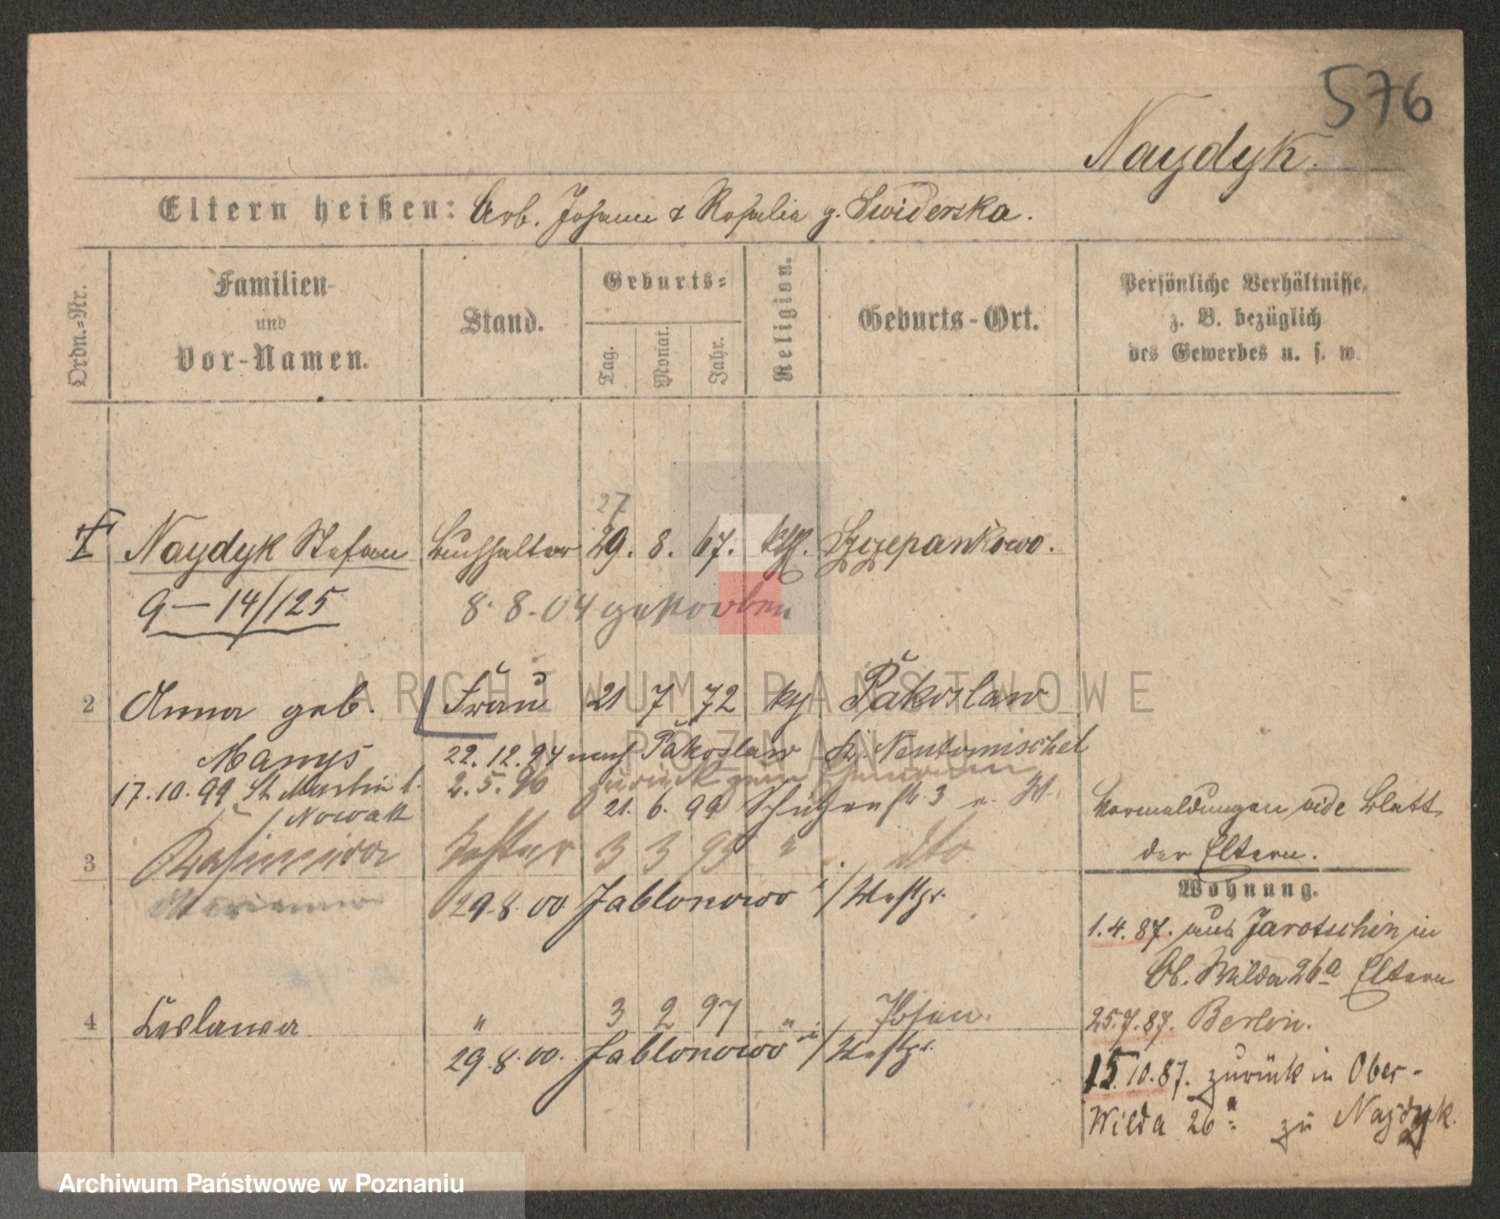 576
Naydyk.
Eltern heißen: Arb. Johann & Rosalia g. Swiderska.
Ordn.-Nr.
Familien-
und
Vor-Namen.
Stand.
Geburts-
Tag.
Monat.
Jahr.
Religion.
Geburts-Ort.
Persönliche Verhältnisse,
z. B. bezüglich
des Gewerbes u. s. w.
27
Naydyk Stefan Buchhalter 29. 8. 67. kth. Szczepankowo.
9-14/125 8. 8. 04 gestorben
2 Anna geb. Frau 21 7 72 kth Pakoslaw
Manys 22.12.94 nach Pakoslaw Kr. Neutomischel
17.10.99 St. Martin b. 2.5.96 zurück zum Ehemann
Nowak 21. 6. 99 Schützenstr 3
3 Kasimira Tochter 3 3 95 " dto
Marianna 29.8.00 Jablonowo i/Westpr.
4 Leslawa " 3 2 97 " Posen.
29.8.00. Jablonowo i/Westpr.
Vormeldungen vide Blatt
der Eltern.
Wohnung.
1.4.87. aus Jarotschin in
Ob. Wilda 26a Eltern
25.7.87. Berlin.
15.10.87. zurück in Ober-
Wilda 26a zu Naydyk.
ARCHIWUM PAŃSTWOWE
W POZNANIU
Archiwum Państwowe w Poznaniu